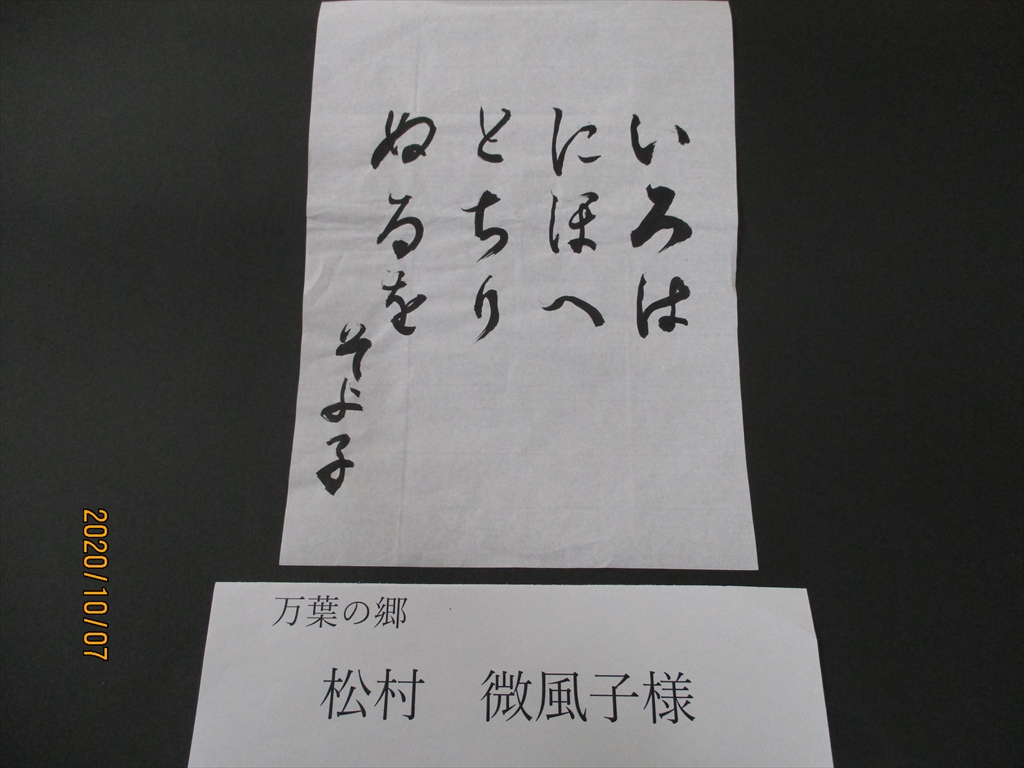 いろは
にほへ
とちり
ぬるを
そよ子
万葉の郷
松村　微風子様
2020/10/07